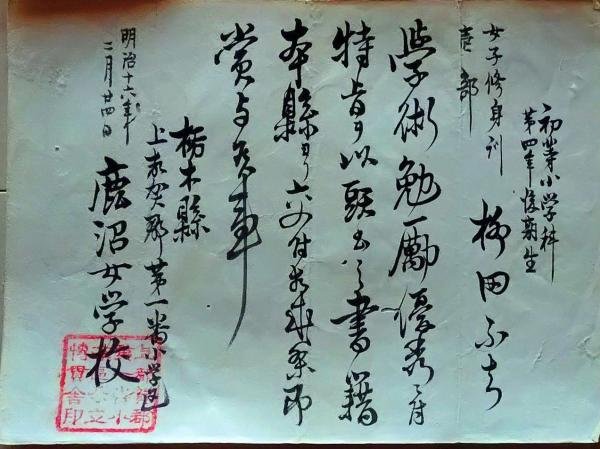 初等小学科
第四年後期生
柳田
女子修身訓
壱部
學術勉勵優秀ニ付
特旨ヲ以頭書之書籍
本縣ヨリ付
賞与候事
栃木縣
上都賀郡第一番小学区
鹿沼女学校
明治十六年
二月廿四日